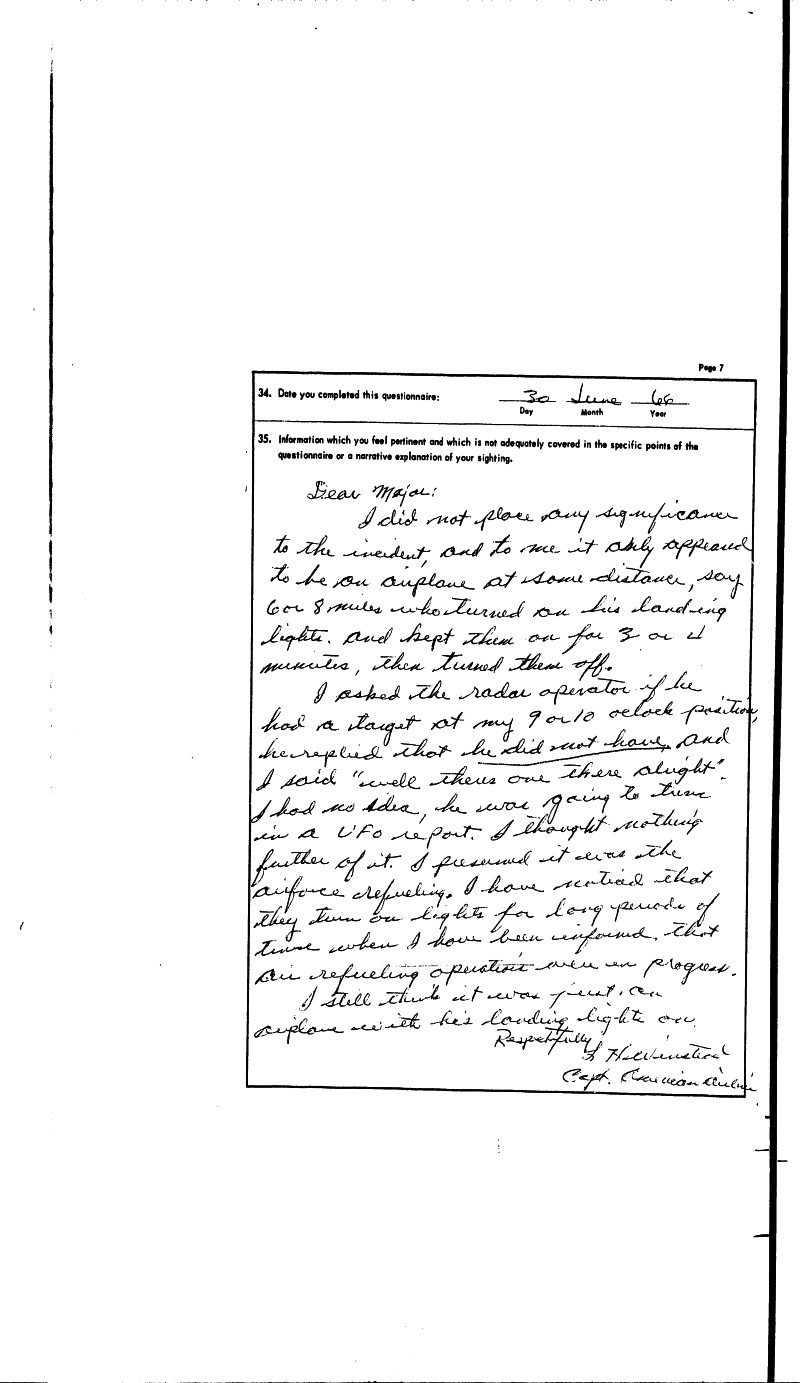 Page 7
34. Date you completed this questionnaire: 30 June 66
Day Month Year
35. Information which you feel pertinent and which is not adequately covered in the specific points of the
questionnaire or a narrative explanation of your sighting.
Dear Major:
I did not place any significance
to the incident, and to me it only appeared
to be an airplane at some distance, say
6 or 8 miles who turned on his landing
lights. and kept them on for 3 or 4
minutes, then turned them off.
I asked the radar operator if he
had a target at my 9 or 10 oclock position,
he replied that he did not have, and
I said "well theres one there alright".
I had no idea, he was going to turn
in a UFO report. I thought nothing
further of it. I presumed it was the
airforce refueling. I have noticed that
they turn on lights for long periods of
time when I have been informed, that
air refueling operations were in progress.
I still think it was just, an
airplane with his landing lights on.
Respectfully
Capt. American Airlines